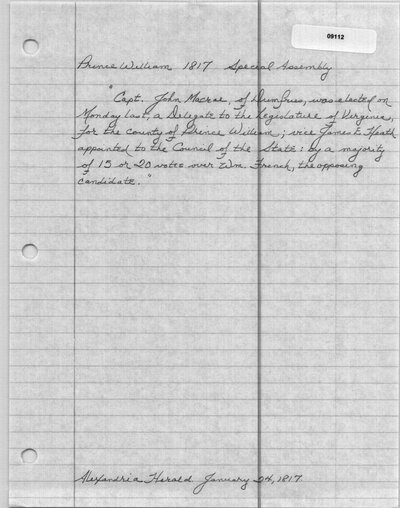 09112
Prince William 1817 Special Assembly
"Capt. John Macrae, of Dumfries, was elected on
Monday last, a Delegate to the Legislature of Virginia,
for the County of Prince William; vice James E. Heath
appointed to the Council of the State: by a majority
of 15 or 20 votes over Wm. French, the opposing
candidate."
Alexandria Herald January 24, 1817